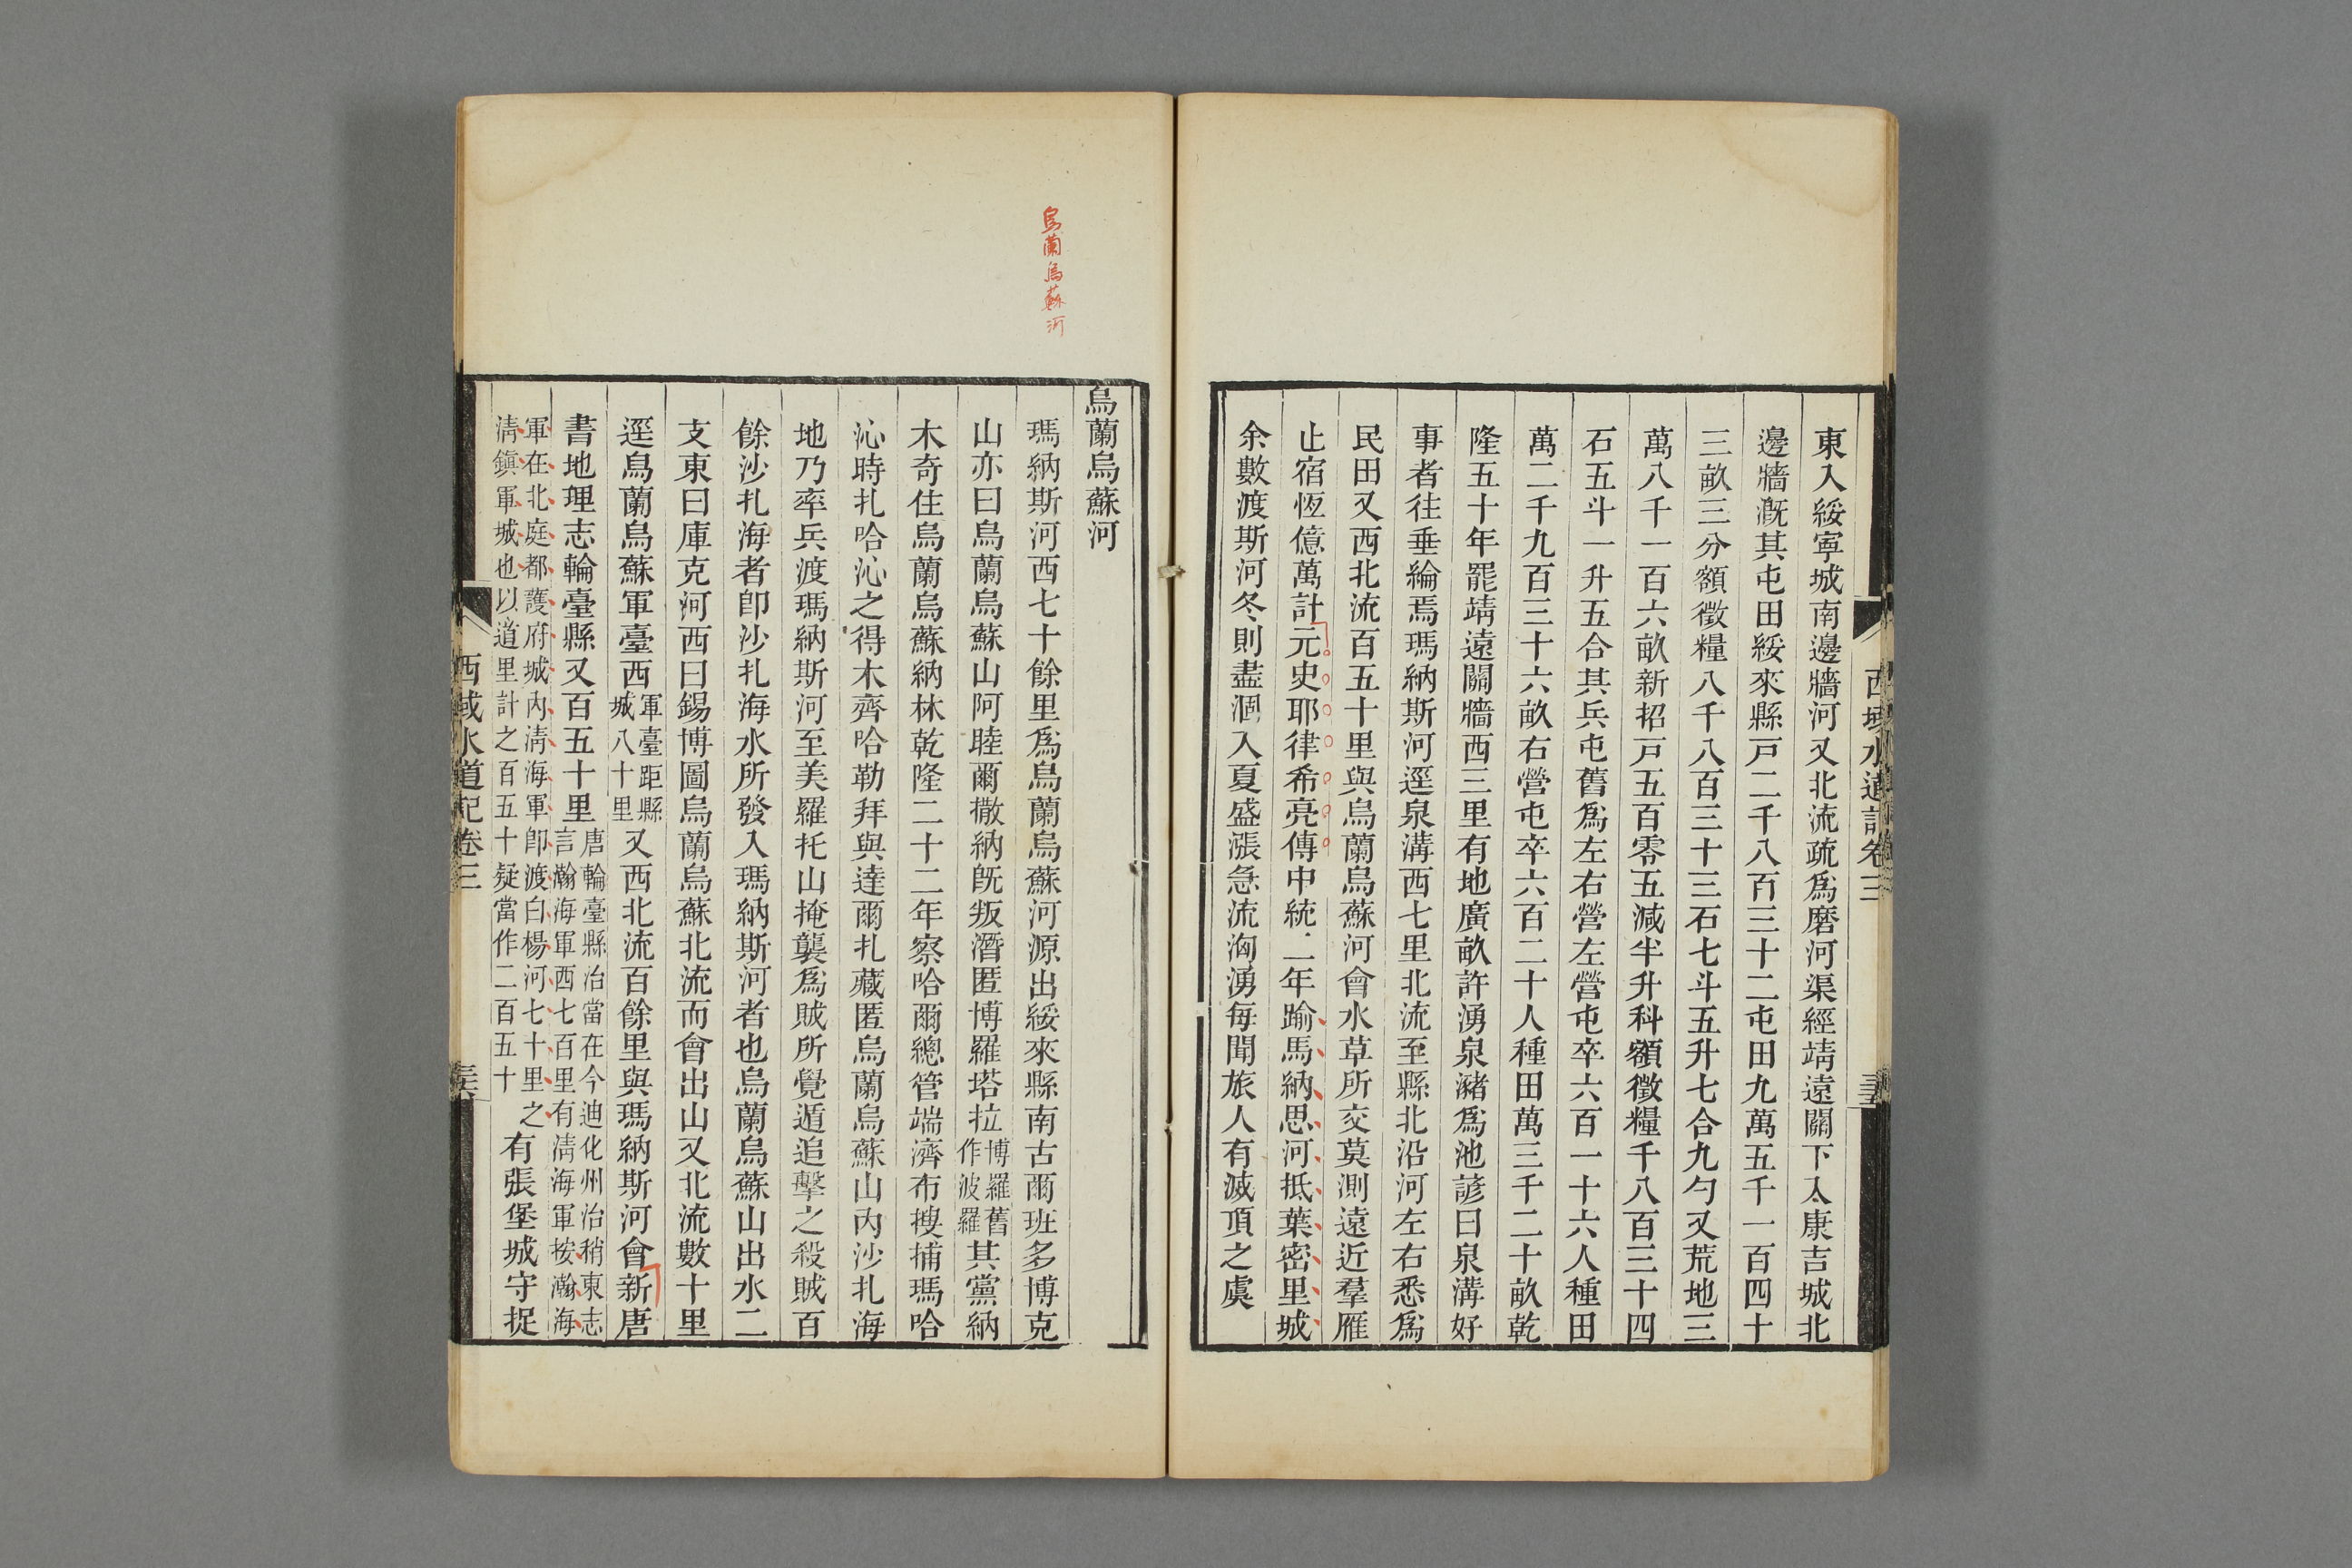 東入綏寜城南邊牆河又北流疏爲磨河渠經靖遠關下入康吉城北
邊牆漑其屯田綏來縣戸二千八百三十二屯田九萬五千一百四十
三畝三分額徵糧八千八百三十三石七斗五升七合九勺又荒地三
萬八千一百六畝新招戸五百零五減半升科額徵糧千八百三十四
石五斗一升五合其兵屯舊爲左右營左營屯卒六百一十六人種田
萬二千九百三十六畝右營屯卒六百二十人種田萬三千二十畝乾
隆五十年罷靖遠關牆西三里有地廣畝許湧泉瀦爲池諺曰泉溝好
事者往垂綸焉瑪納斯河逕泉溝西七里北流至縣北沿河左右悉爲
民田又西北流百五十里與烏蘭烏蘇河會水草所交莫測遠近羣雁
止宿恆億萬計元史耶律希亮傳中統二年踰馬納思河抵葉密里城
余數渡斯河冬則盡涸入夏盛漲急流洶湧每聞旅人有滅頂之虞
西域水道記卷三
烏蘭烏蘇河
烏蘭烏蘇河
瑪納斯河西七十餘里爲烏蘭烏蘇河源出綏來縣南古爾班多博克
山亦曰烏蘭烏蘇山阿睦爾撒納旣叛潛匿博羅塔拉博羅舊作波羅其黨納
木奇住烏蘭烏蘇納林乾隆二十二年察哈爾總管端濟布搜捕瑪哈
沁時扎哈沁之得木齊哈勒拜與達爾扎藏匿烏蘭烏蘇山內沙扎海
地乃率兵渡瑪納斯河至美羅托山掩襲爲賊所覺遁追擊之殺賊百
餘沙扎海者卽沙扎海水所發入瑪納斯河者也烏蘭烏蘇山出水二
支東曰庫克河西曰錫博圖烏蘭烏蘇北流而會出山又北流數十里
逕烏蘭烏蘇軍臺西軍臺距縣城八十里又西北流百餘里與瑪納斯河會新唐
書地理志輪臺縣又百五十里唐輪臺縣治當在今迪化州治稍東志言瀚海軍西七百里有淸海軍按瀚海
軍在北庭都護府城內淸海軍卽渡白楊河七十里之淸鎭軍城也以道里計之百五十疑當作二百五十有張堡城守捉
西域水道記卷三